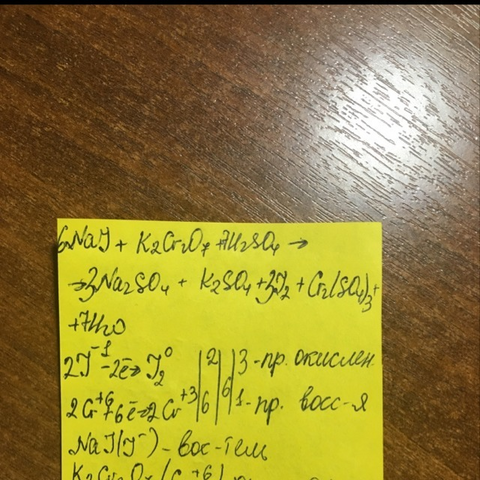 6NaJ + K2Cr2O7 + 7H2SO4 →
→ 3Na2SO4 + K2SO4 + 3J2 + Cr2(SO4)3 +
+ 7H2O
2J⁻¹ - 2ē → J2⁰ | 2 | | 3 - пр. окислен.
2Cr⁺⁶ + 6ē → 2Cr⁺³ | 6 | 6 | 1 - пр. восс-я
NaJ (J⁻) - вос-тель
K2Cr2O7 (Cr⁺⁶)